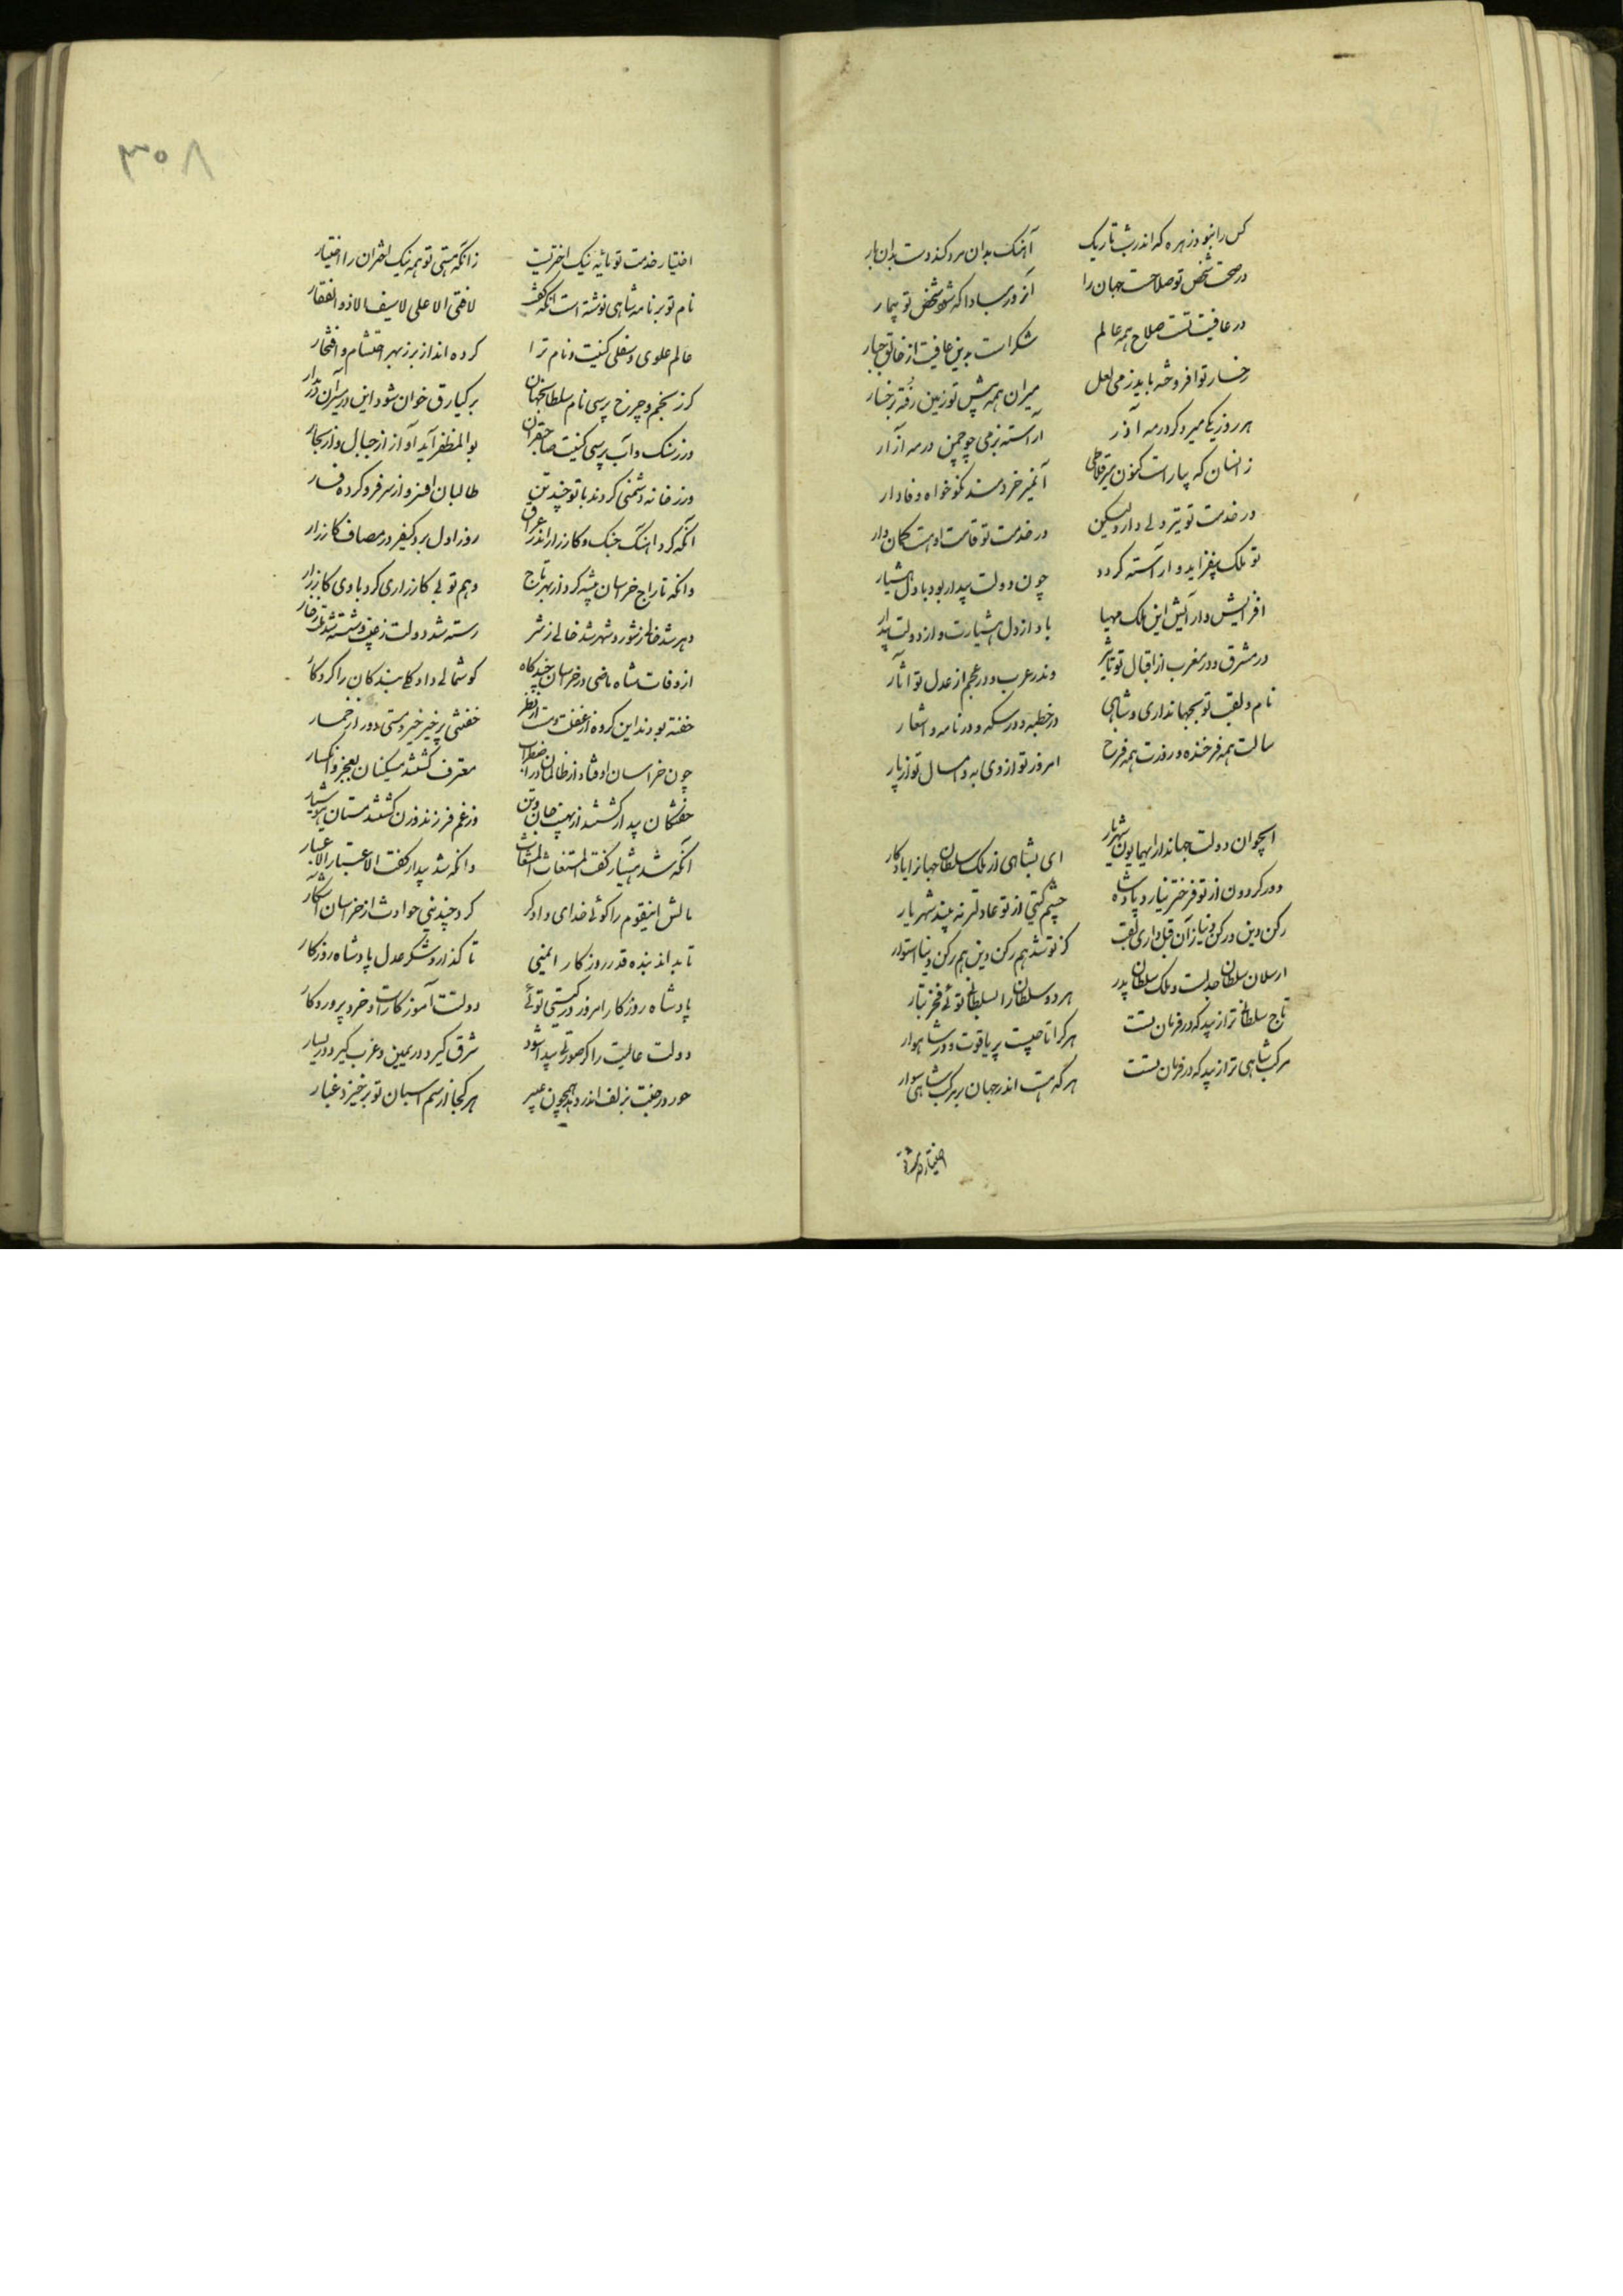 کس را نبود زهره که اندر شب تاریک آهنگ بدان مرد کند دست بدان بار
در صحت شخص تو صلاحست جهان را آزرده مبادا که شود شخص تو بیمار
در عافیت تست صلاح همه عالم شکر است بدین عافیت از خالق جبار
رخسار تو افروخته باید ز می لعل میران همه پیش تو زمین رفته برخسار
هر روز یکی میر دگر در مه آذر آراسته بزمی چو چمن در مه آزار
زانسان که بیاراست کنون آن میر خردمند نکو خواه وفادار
در خدمت تو تیر دلی دارد لیکن در خدمت تو قامت او هست کمان وار
تو ملک بیفزاید و آراسته گردد چون دولت بیدار بود با دل هشیار
افزایش و آرایش این ملک مهیا باد از دل هشیارت و از دولت بیدار
در مشرق و در مغرب از اقبال تو تاثیر وندر عرب و در عجم از عدل تو آثار
نام و لقب تو بجهانداری و شاهی در خطبه و در سکه و در نامه و اشعار
سالت همه فرخنده و روزت همه فرخ امروز تو از دی به و امسال تو از پار
ای جوان دولت جهاندار ای همایون شهریار ای بشاهی از ملک سلطان جهانرا یادگار
دور گردون از تو فرختر نیارد پادشاه چشم گیتی از تو عادلتر نه بیند شهریار
رکن دین و رکن دنیا زان قبل داری لقب کز تو شد هم رکن دین هم رکن دنیا استوار
ارسلان سلطان جدتست و ملک سلطان پدر هر دو سلطان را بسلطانی توئی فخر تبار
تاج سلطانی ترا زیبد که در فرمان تست هر کرا تاجیست پر یاقوت و در شاهوار
مرکب شاهی ترا زیبد که در فرمان تست هر که هست اندر جهان بر مرکب شاهی سوار
اختیار خدمت تو
۳۰۸
اختیار خدمت تو مایه نیک اختریست زانکه هستی تو همه نیک اختران را اختیار
نام تو بر نامه شاهی نوشته است آنکه گفت لا فتی الا علی لا سیف الا ذوالفقار
عالم علوی و سفلی کنیت و نام ترا کرده‌اند از بر ز بهر احتشام و افتخار
گر ز نجم و چرخ پرسی نام سلطان جهان برکیارق خوان شود این در مسیر آن در مدار
ور ز سنگ و آب پرسی کنیت صاحبقران بوالمظفر آید آواز از جبال و از بحار
ور ز خانه دشمنی کردند با تو چند تن طالبان افسر و از سر فرو کرده فسار
آنکه کرد آهنگ جنگ و کارزار اندر عراق روز اول برد کیفر در مصاف کارزار
وانکه تاراج خراسان پیشه کرد از بهر تاج وهم تو بی کارزاری کرد با وی کارزار
دهر شد خالی ز شور و شهر شد خالی ز شر رسته شد دولت ز عیب و شسته شد ملک از غبار
از وفات شاه ماضی در خراسان چند گاه گوشمالی داد گوئی بندگان را کردگار
خفته بودند این گروه از غفلت و مست از نظر خفتنی پر خیر خیر و مستی دور از خمار
چون خراسان اوفتاد از ظالمان در اضطراب معترف گشتند مسکینان بعجز و انکسار
خفتگان بیدار گشتند از نهیب جان و تن وز غم فرزند و زن گشتند مستان هوشیار
آنکه شد هشیار گفت المستغاث المستغاث وانکه شد بیدار گفت الاعتبار الاعتبار
مالش این قوم را گوئی خدای دادگر کرد چندینی حوادث از خراسان آشکار
تا بداند بنده قدر روزگار ایمنی تا گذارد شکر عدل پادشاه روزگار
پادشاه روزگار امروز در گیتی توئی دولتت آموزگارست و خرد پروردگار
دولت عالیت را گر صورتی پیدا شود شرق گیرد در یمین و غرب گیرد در یسار
حور در جنت بزلف اندر دمد همچون عبیر هر کجا از سم اسبان تو برخیزد غبار